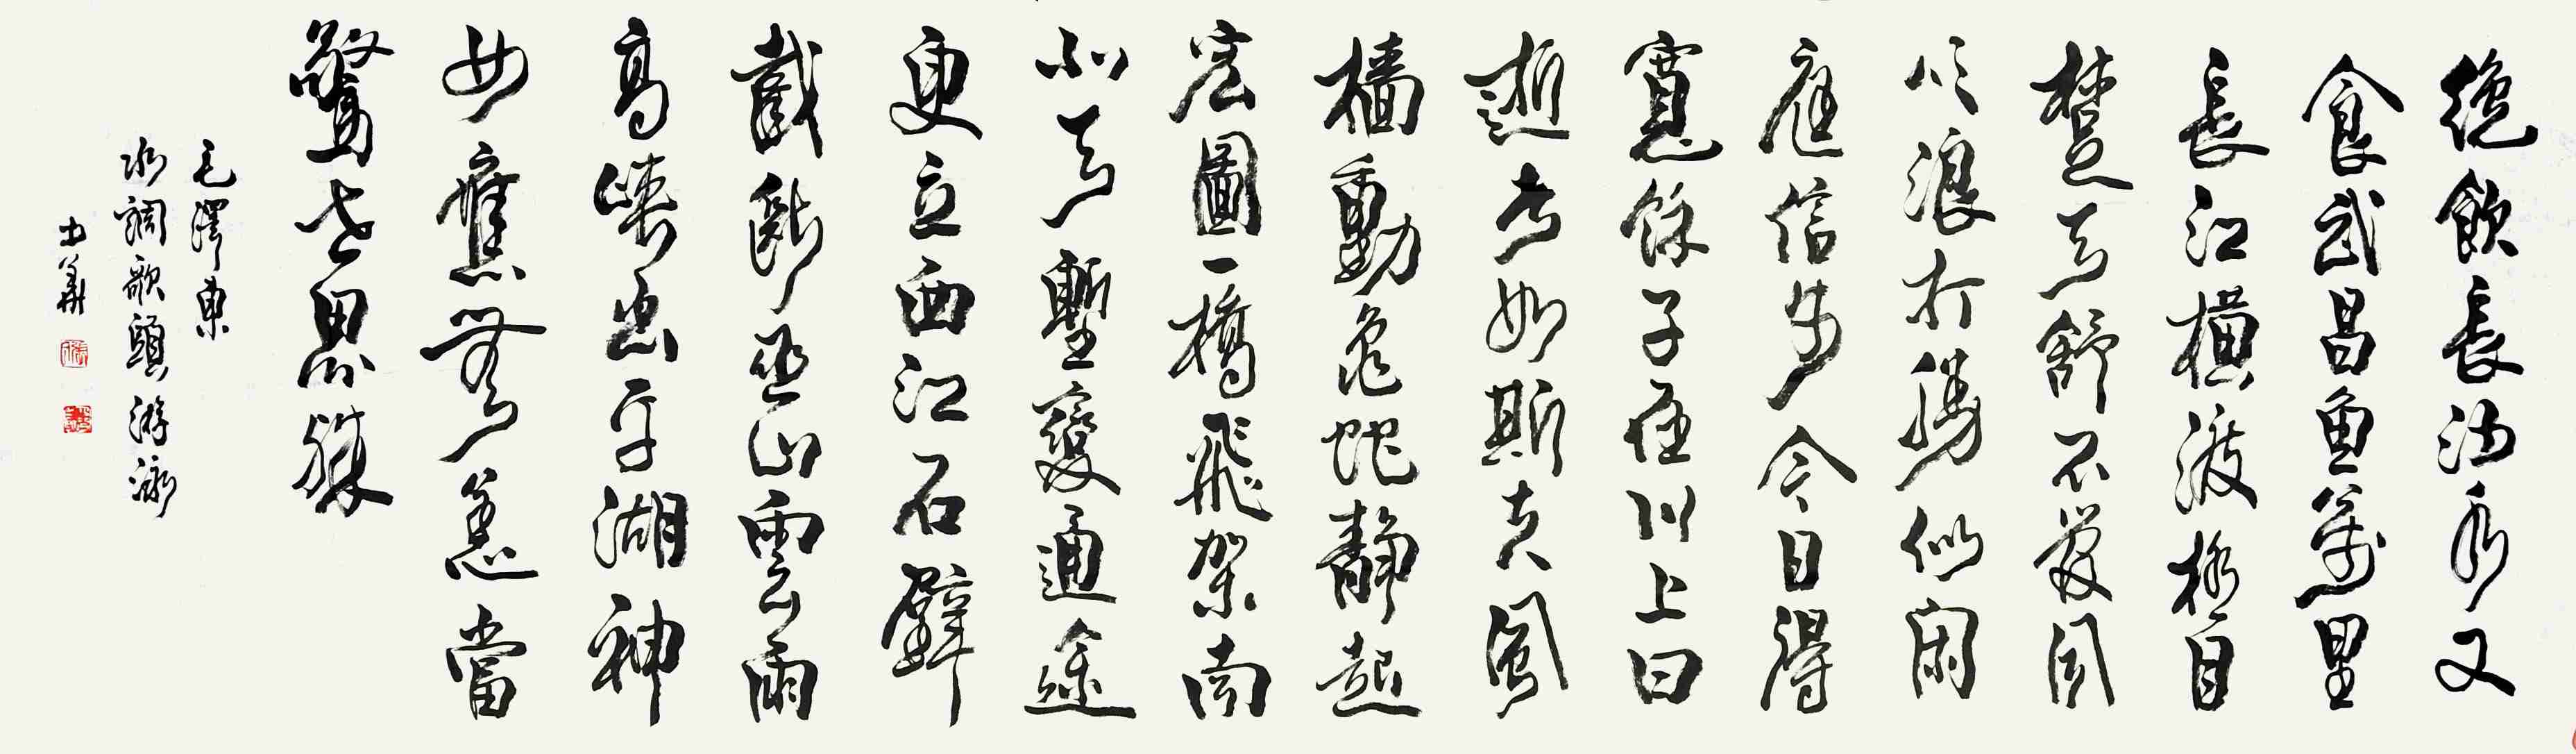 纔飲長沙水又
食武昌魚萬里
長江橫渡極目
楚天舒不管風
吹浪打勝似閑
庭信步今日得
寬餘子在川上曰
逝者如斯夫風
檣動龜蛇靜起
宏圖一橋飛架南
北天塹變通途
更立西江石壁
截斷巫山雲雨
高峽出平湖神
女應無恙當
驚世界殊
毛澤東
水調歌頭游泳
士華